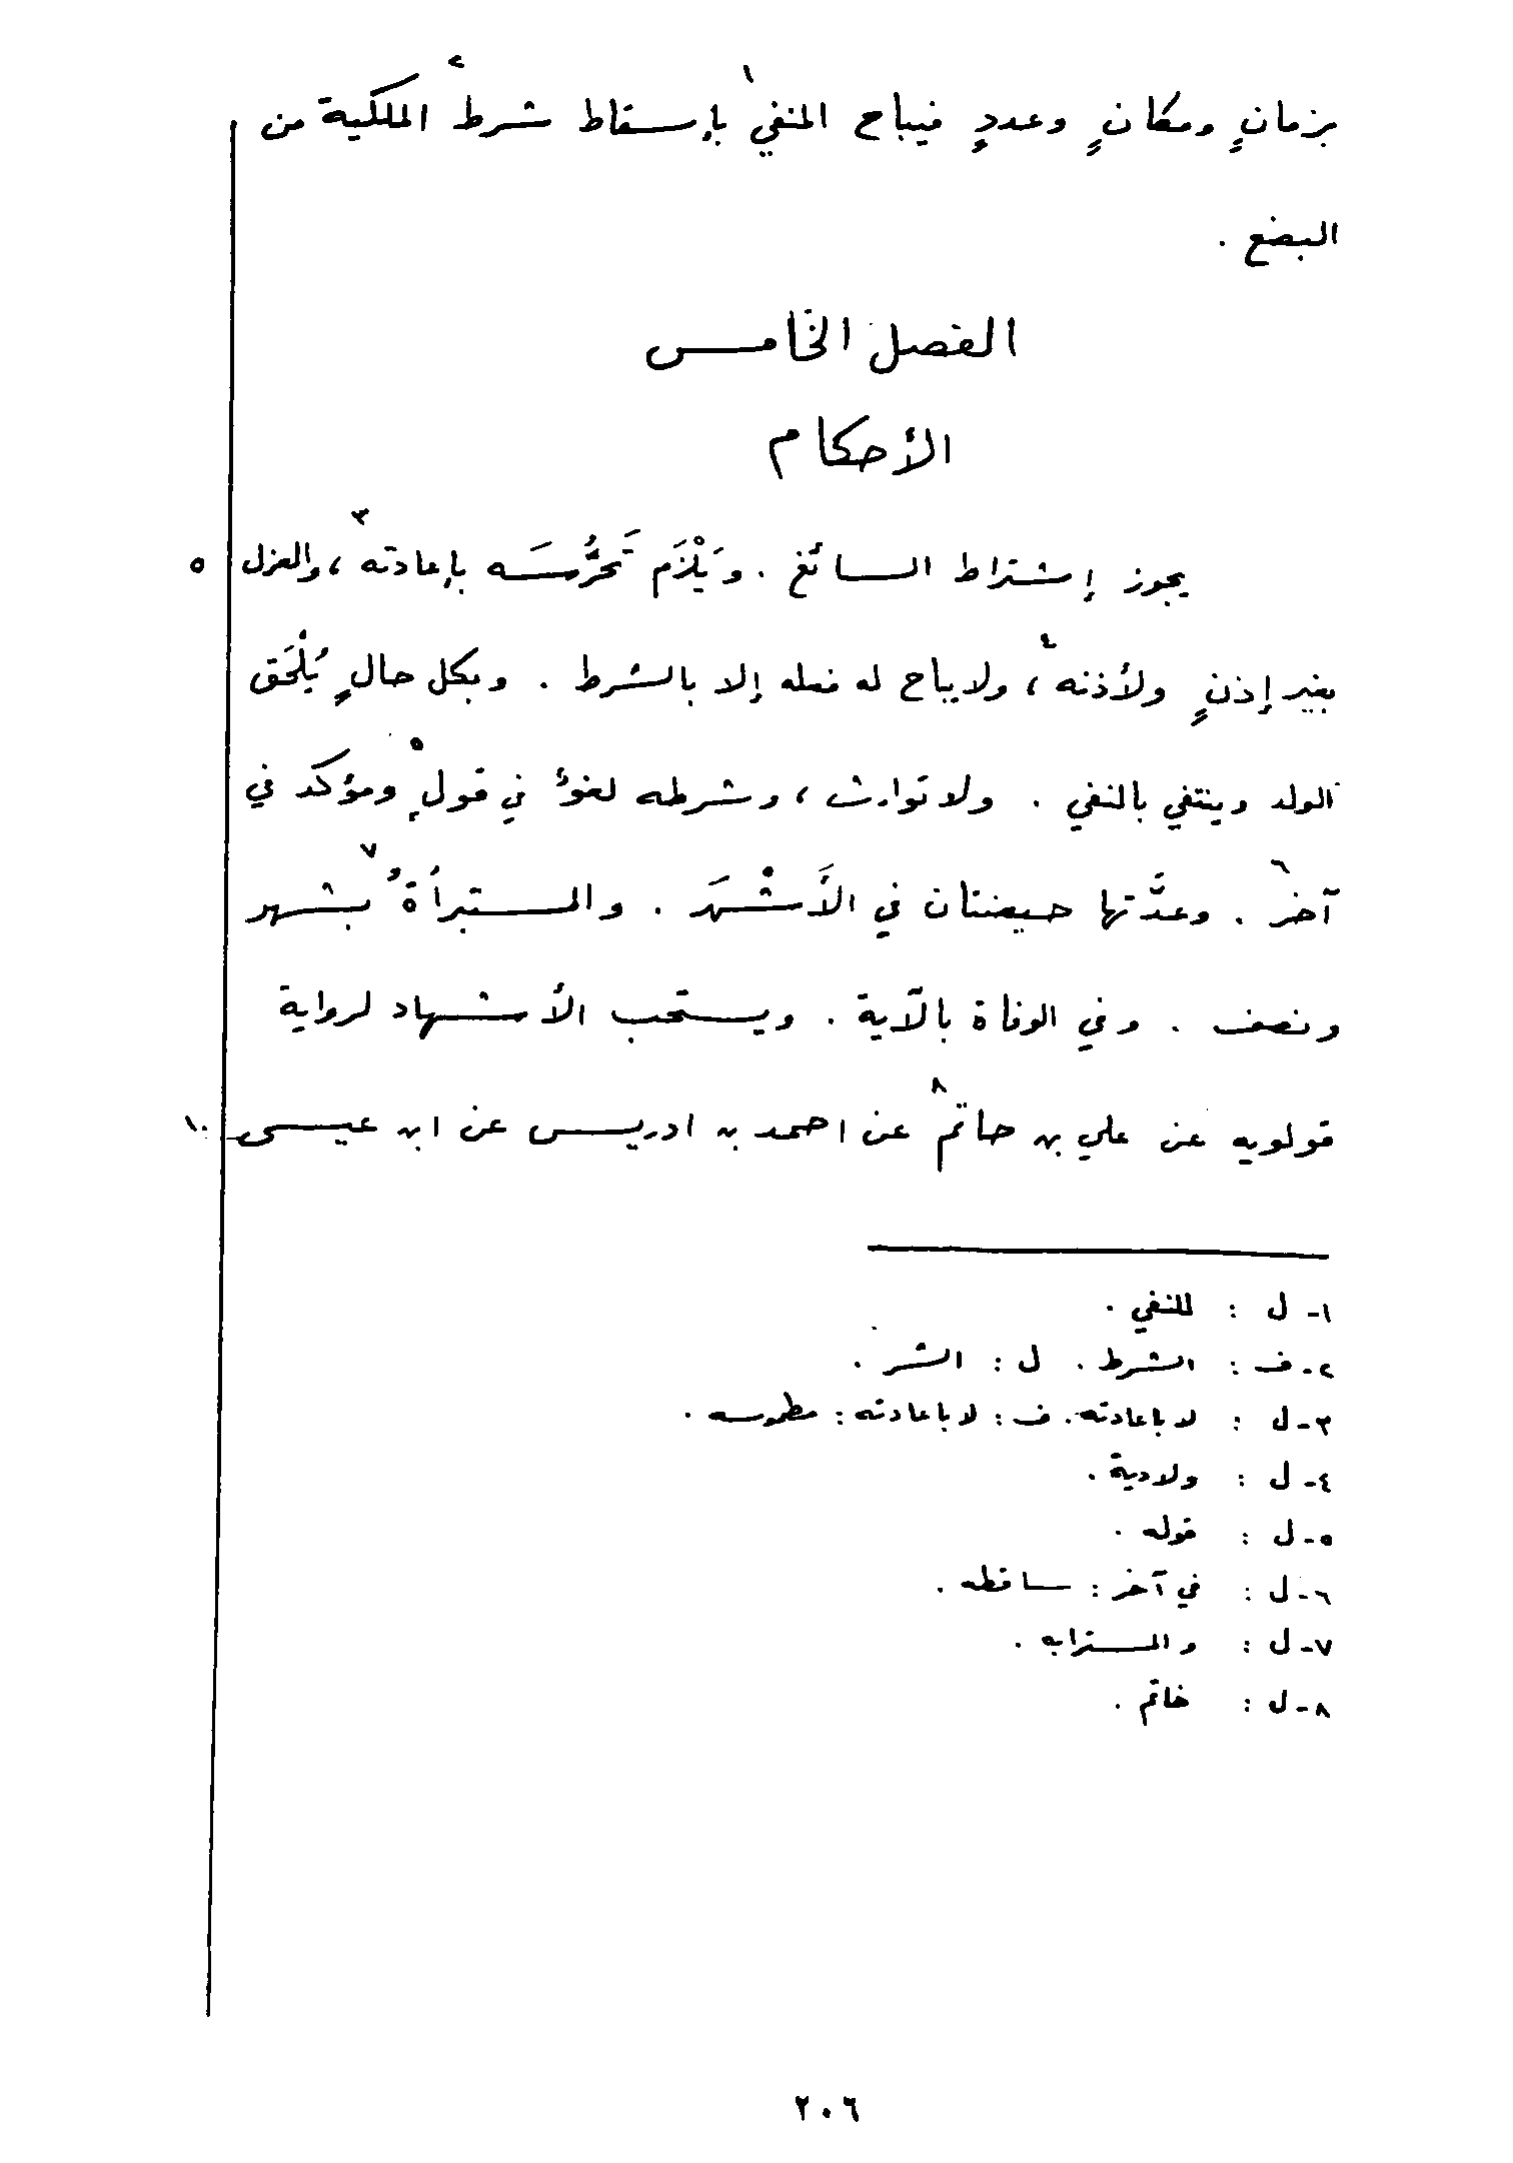 بزمانٍ ومكانٍ وعددٍ فيباح المنفي١ بإسقاط شرط٢ الملكية من
البضع .
الفصل الخامس
الأحكام
يجوز إشتراط السائغ . ويَلْزَم تَحَرُّسَه بإعادته٣ ، والعزل ٥
بغير إذنٍ ولأذنه٤ ، ولا يباح له فعله إلا بالشرط . وبكل حالٍ يُلْحَق
الولد وينتفي بالنفي . ولا توارث ، وشرطه لغوٌ في قولٍ٥ ومؤكد في
آخر٦ . وعدَّتها حيضتان في الأَشْهَر . والمستبرأةُ٧ بشهر
ونصف . وفي الوفاة بالآية . ويستحب الأشهاد لرواية
قولويه عن علي بن حاتم٨ عن احمد بن ادريس عن ابن عيسى ١٠
١- ل : للنفي .
٢- ف : الشرط . ل : الشر .
٣- ل : لد باعادته . ف : لا باعادته : مطموسه .
٤- ل : ولادية .
٥- ل : قوله .
٦- ل : في آخر : ساقطه .
٧- ل : والمسترابه .
٨- ل : خاتم .
٢٠٦